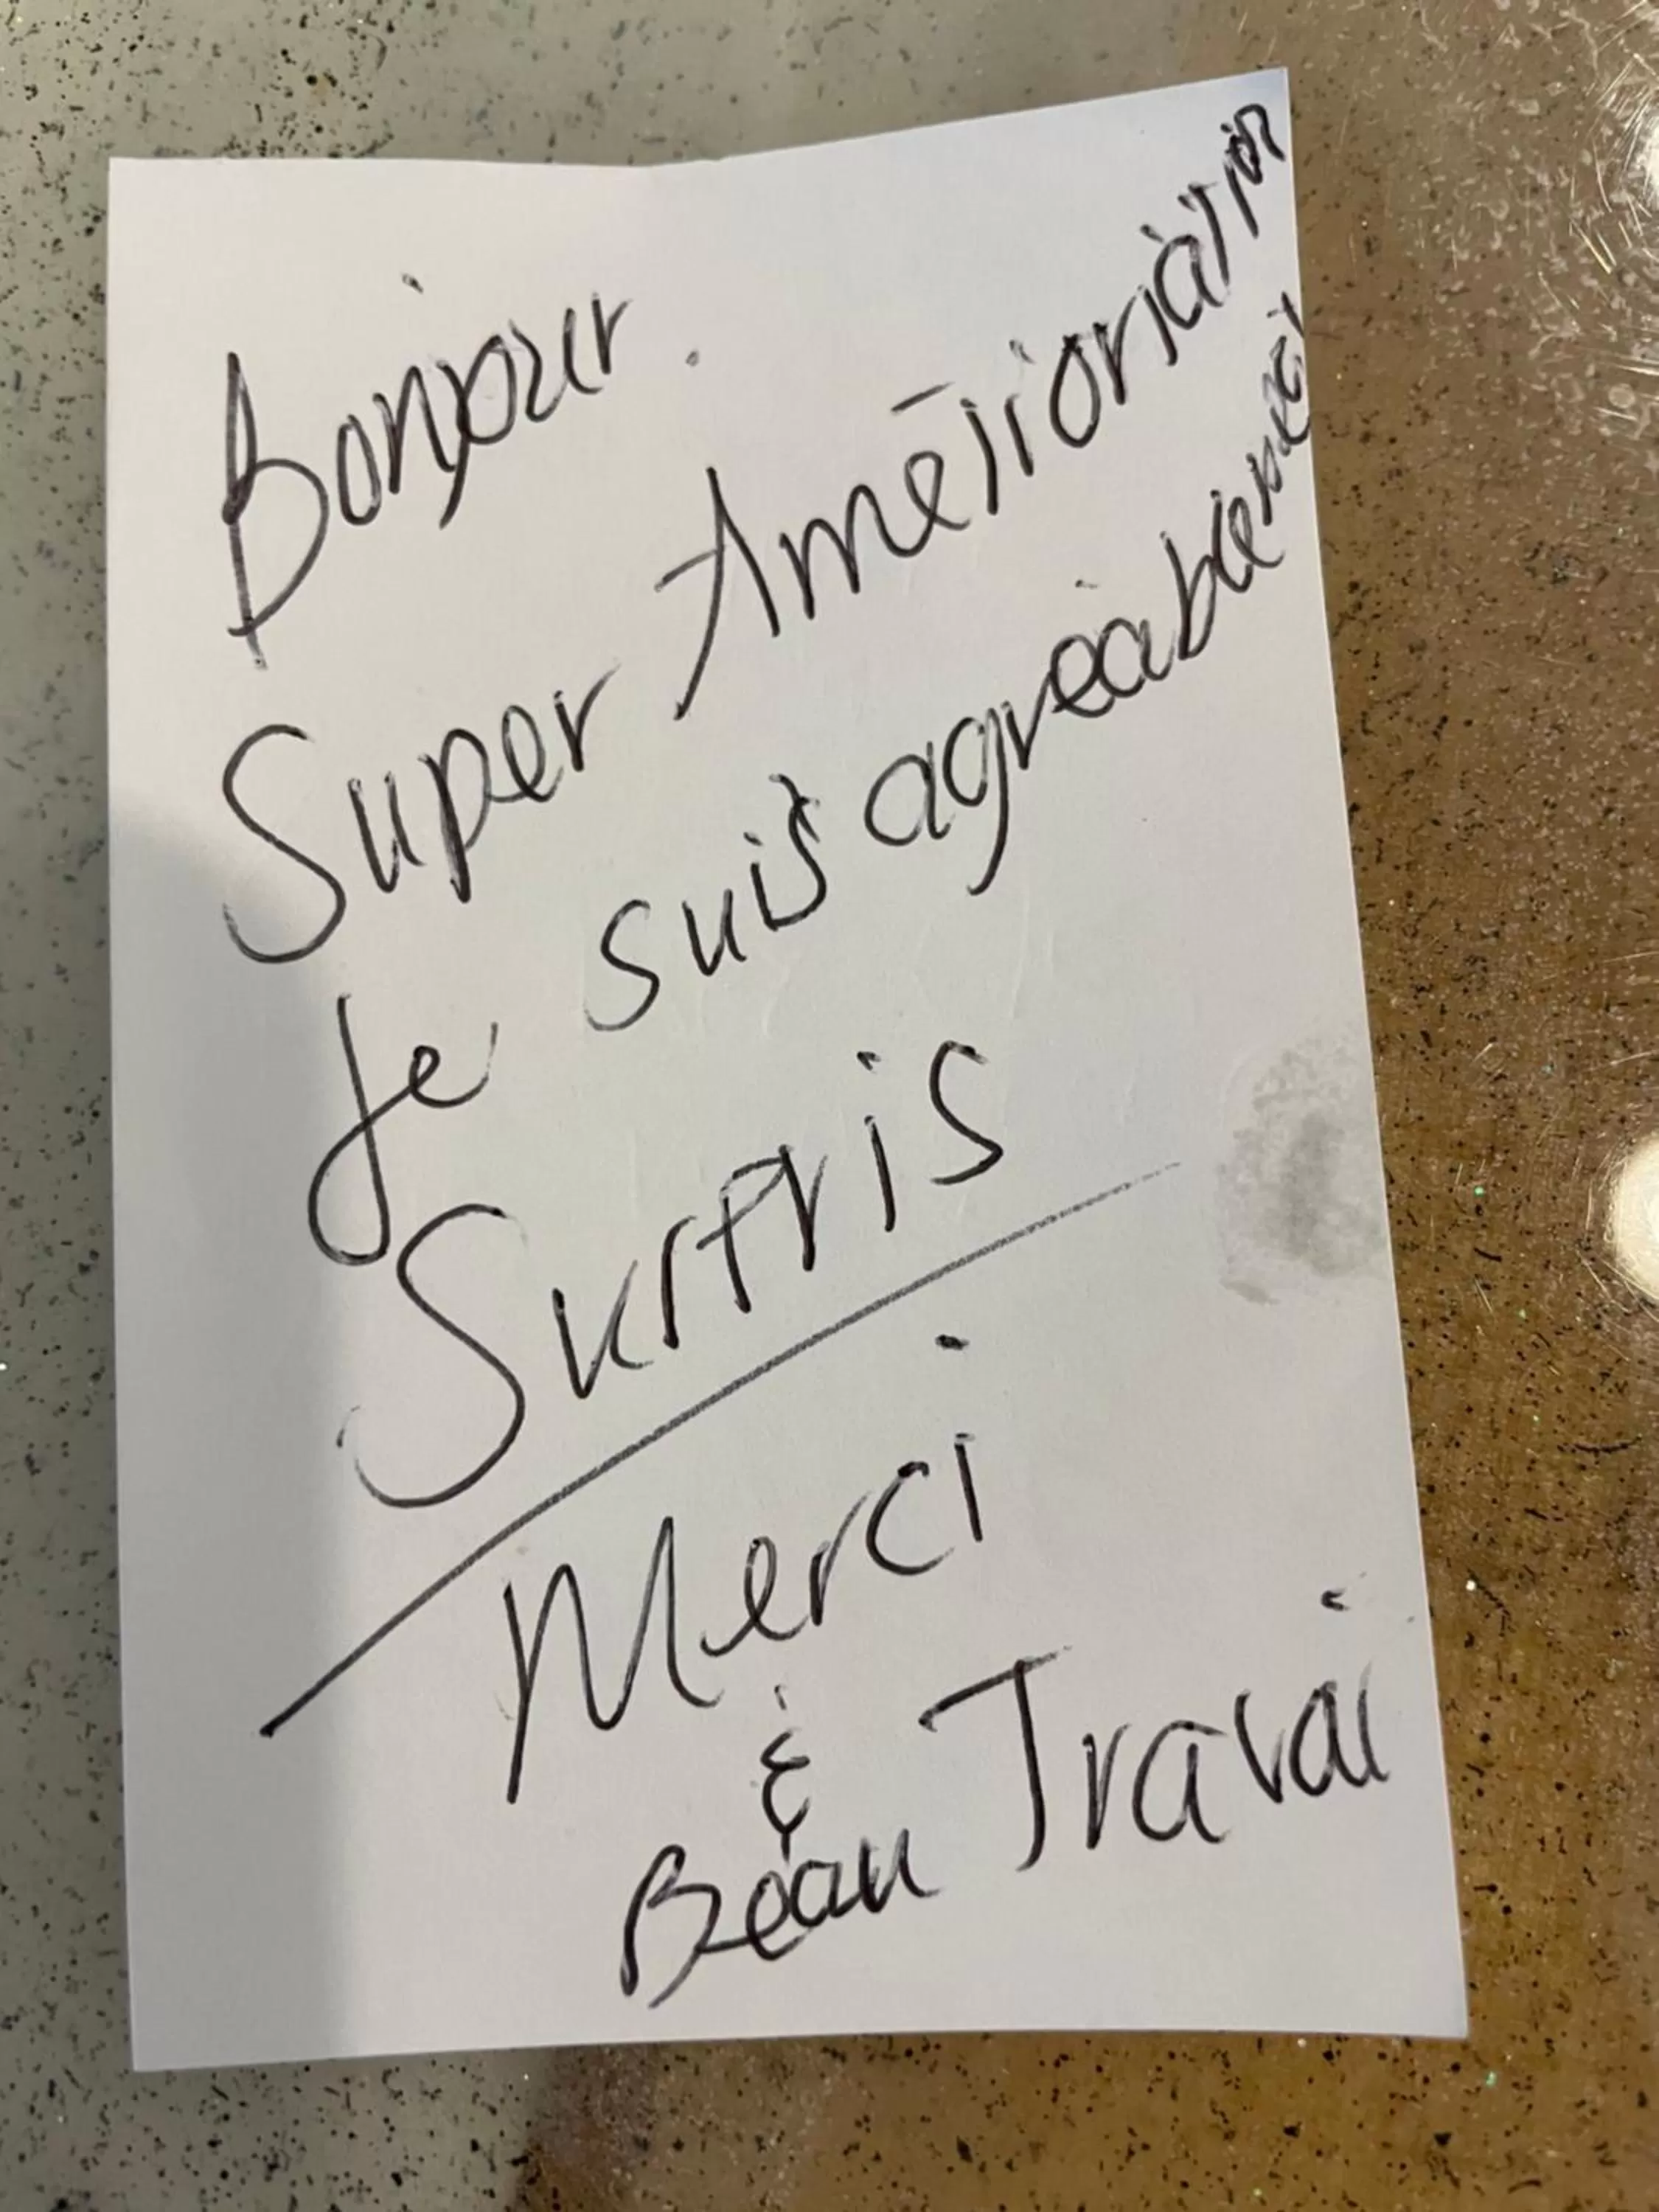 Bonjour.
Super Amélioriation
Je suis agréablement
Surpris
Merci
&
Beau Travai